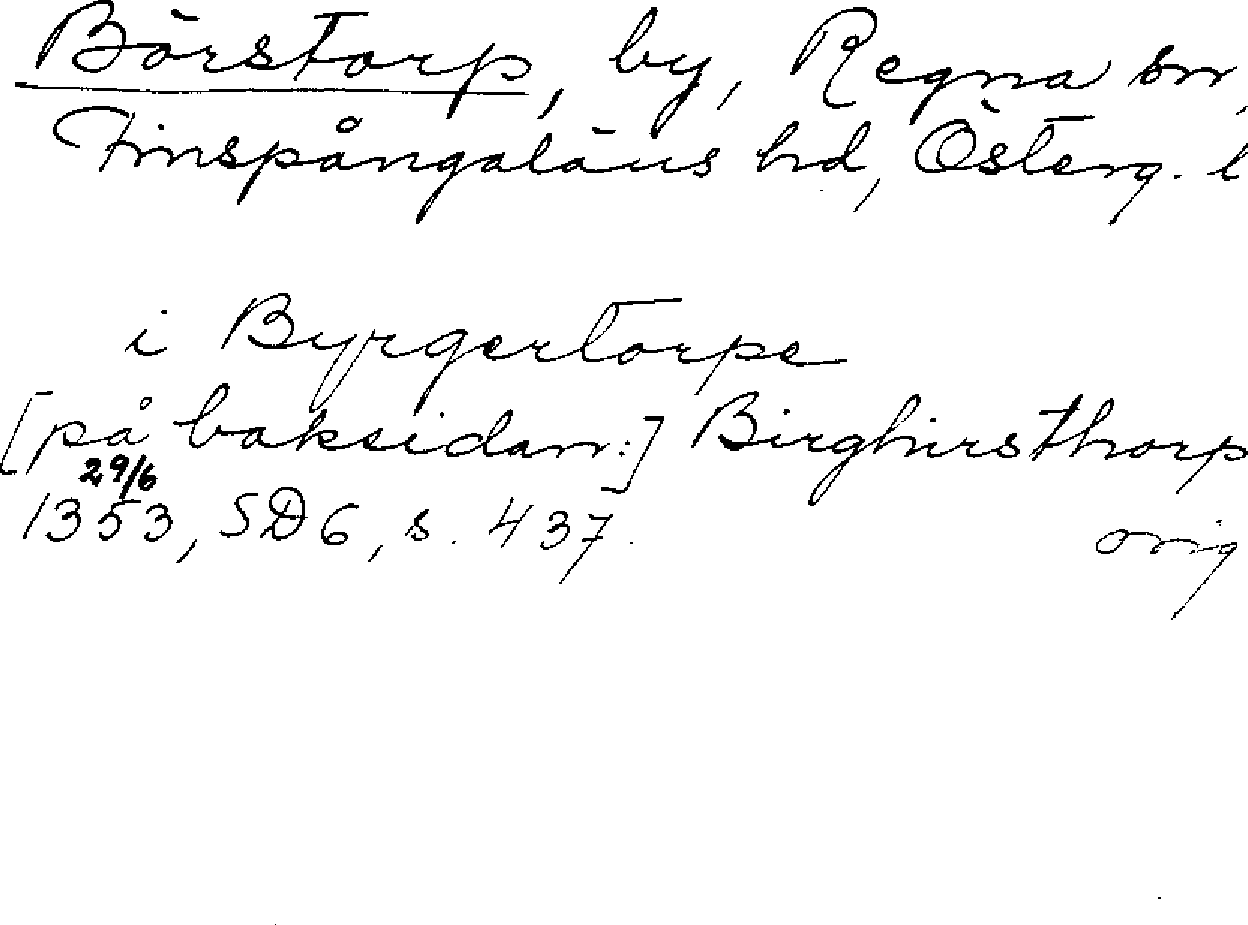 Börstorp, by, Regna sn,
Finspångaläns hd, Österg. l
i Byrgertorpe
[på baksidan:] Birghirsthorp
29/6
1353, SD 6, s. 437.
orig